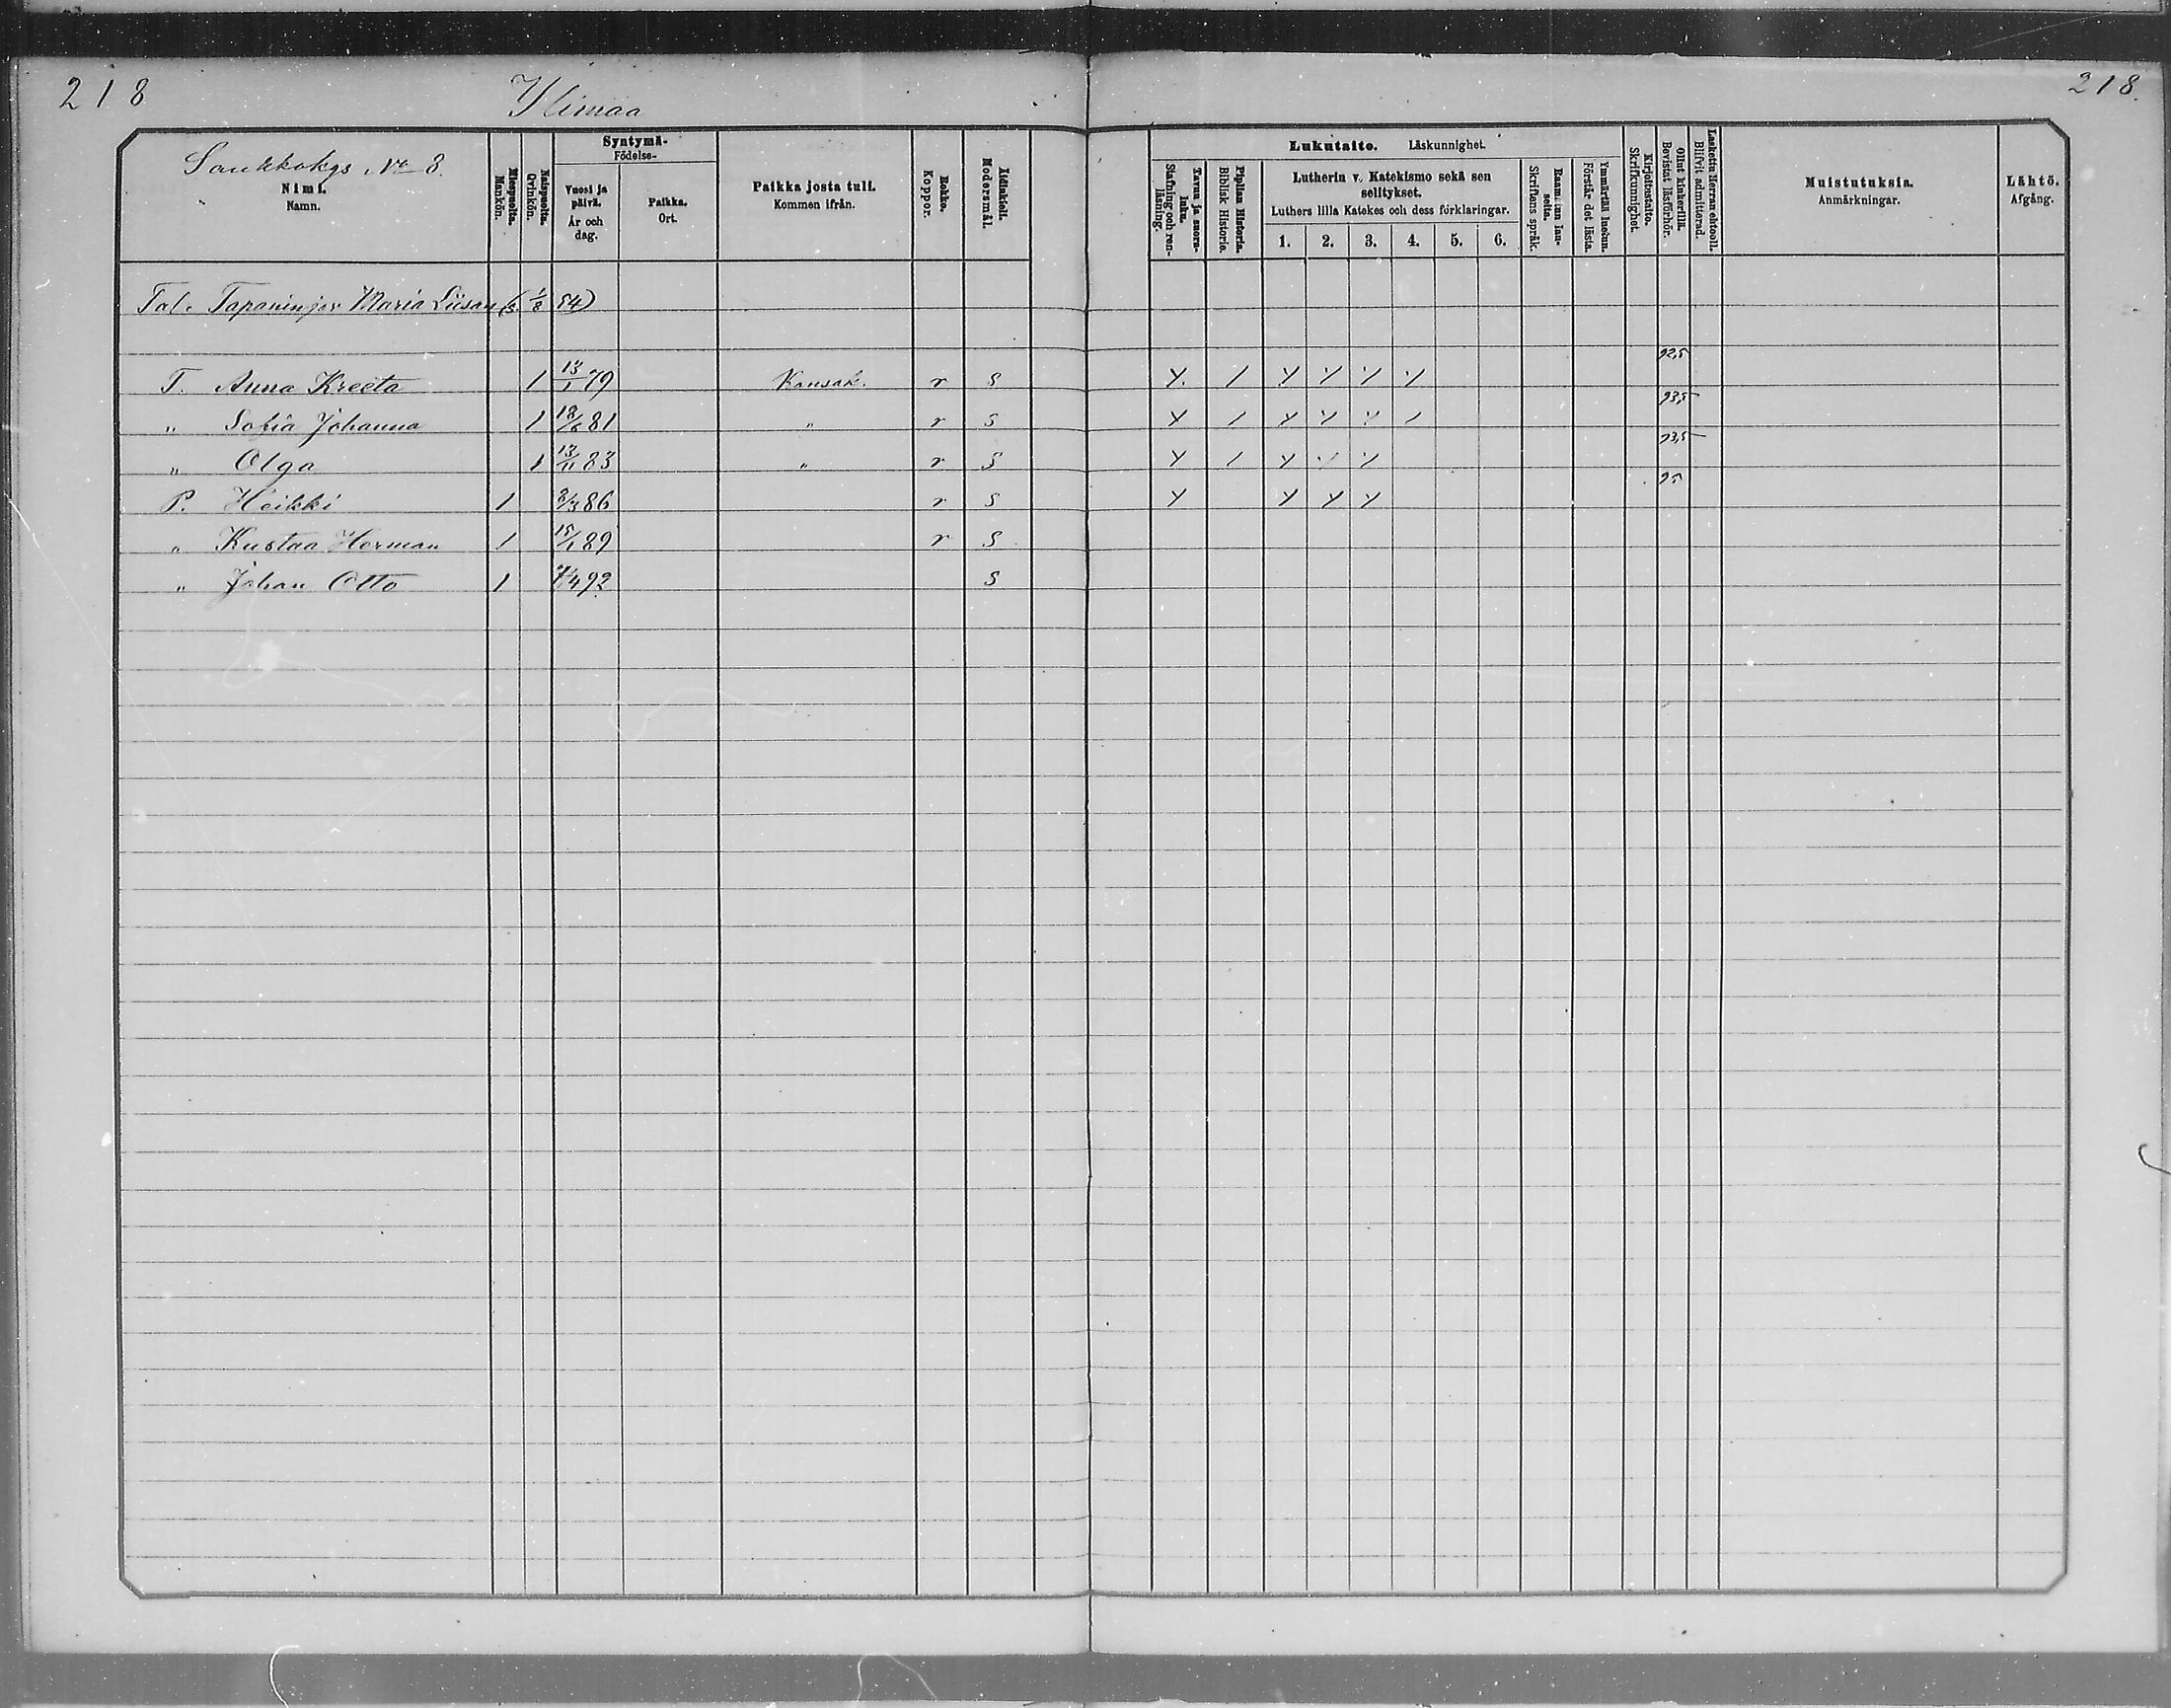 218 Ylimaa 218.
Saukkokys No 8.
Nimi.
Namn.
Miespuolta.
Mankön.
Naispuolta.
Qvinkön.
Syntymä-
Födelse-
Vuosi ja
päivä.
År och
dag.
Paikka.
Ort.
Paikka josta tuli.
Kommen ifrån.
Rokko.
Koppor.
Äidinkieli.
Modersmål.
Lukutaito. Läskunnighet.
Tavuu ja suora-
luku.
Stafning och ren-
läsning.
Piplian Historia.
Biblisk Historie.
Lutherin v. Katekismo sekä sen
selitykset.
Luthers lilla Katekes och dess förklaringar.
1. 2. 3. 4. 5. 6.
Raamatun lau-
seita.
Skriftens språk.
Ymmärtää luetun.
Förstår det lästa.
Kirjoitustaito.
Skrifkunnighet.
Ollut kinkerillä.
Bevistat läsförhör.
Laskettu Herran ehtooll.
Blifvit admitterad.
Muistutuksia.
Anmärkningar.
Lähtö.
Afgång.
Tal. Tapaninjov Maria Liisan (s. 1/8 54)
T. Anna Kreeta 1 13/1 79 Kansak. r s 92,5
" Sofia Johanna 1 18/6 81 " r s 93,5
" Olga 1 13/11 83 " r s 93,5
P. Heikki 1 8/3 86 r s 95
" Kustaa Herman 1 15/1 89 r s
" Johan Otto 1 4/4 92 s